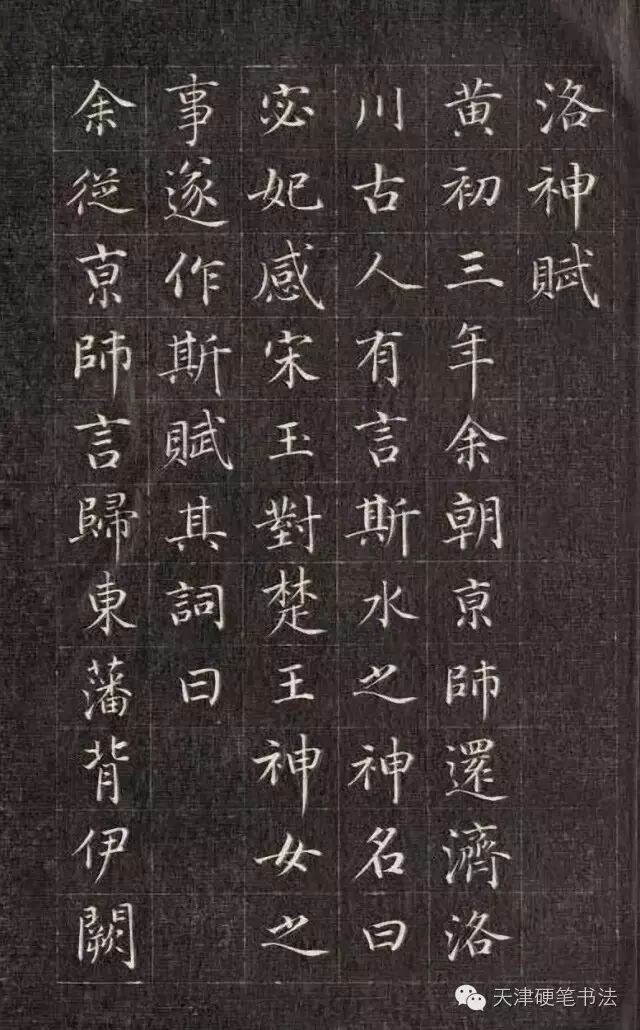 洛神賦
黄初三年余朝京師還濟洛
川古人有言斯水之神名曰
宓妃感宋玉對楚王神女之
事遂作斯賦其詞曰
余從京師言歸東藩背伊闕
天津硬笔书法